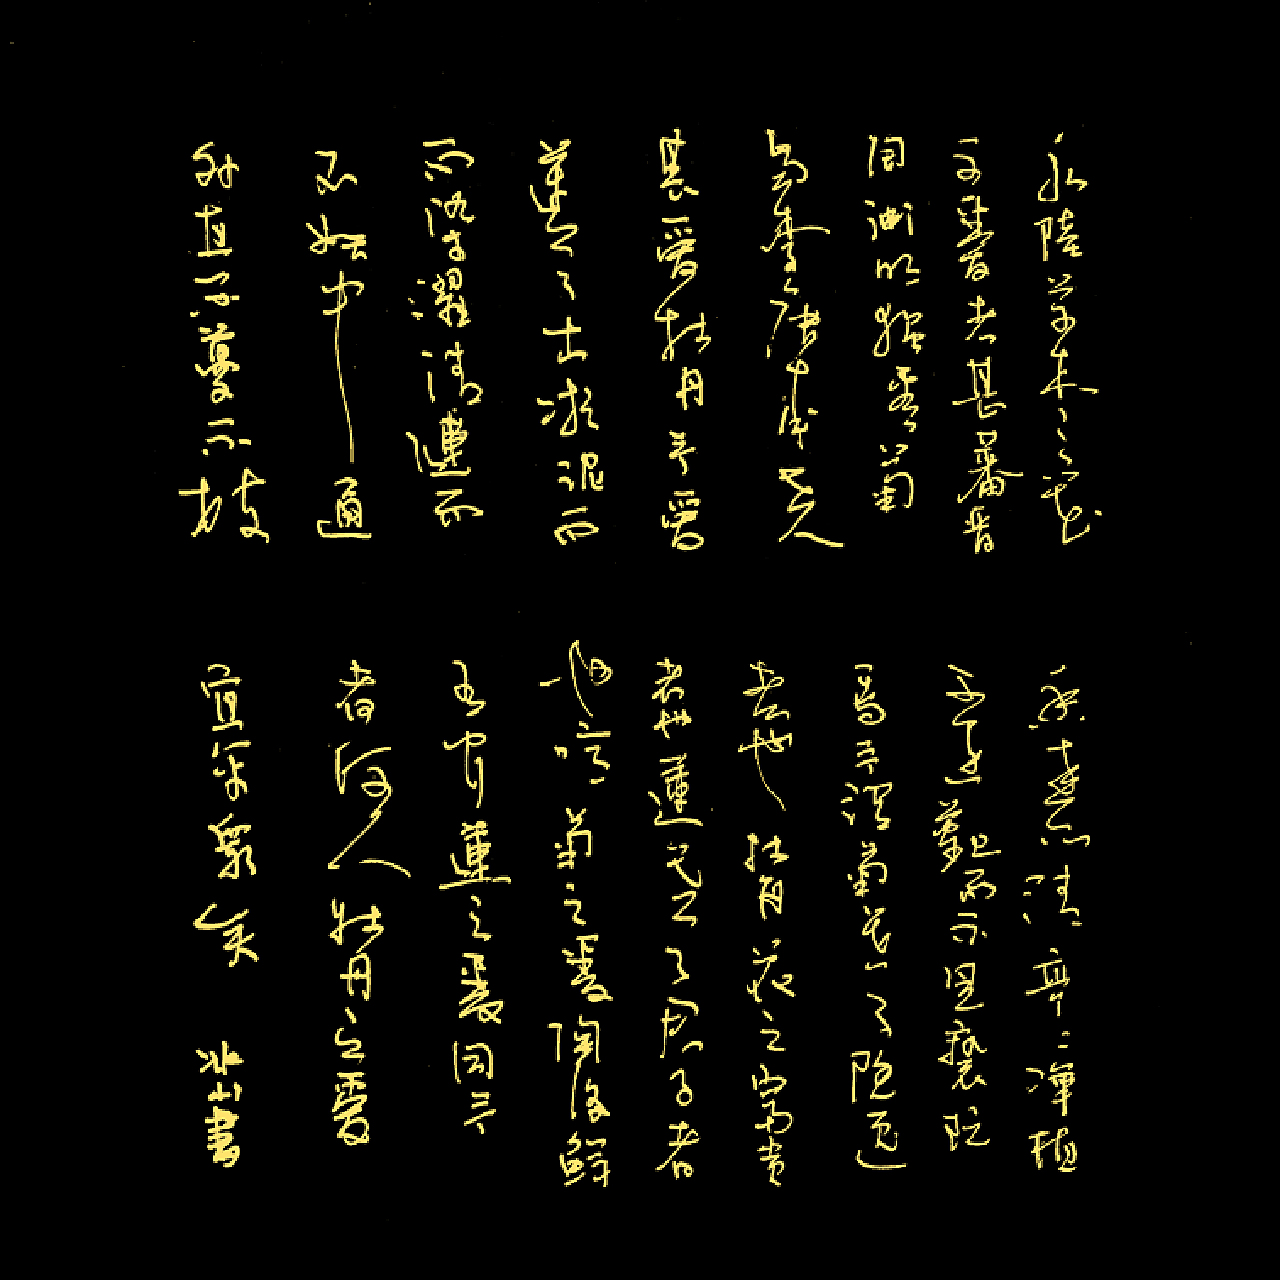 水陸草木之花
可愛者甚蕃晉
陶淵明獨愛菊
自李唐來世人
甚愛牡丹予愛
蓮之出淤泥而
不染濯清漣而
不妖中通
外直不蔓不枝
香遠益清亭亭淨植
可遠觀而不可褻玩
焉予謂菊花之隱逸
者也牡丹花之富貴
者也蓮花之君子者
也噫菊之愛陶後鮮
有聞蓮之愛同予
者何人牡丹之愛
宜乎眾矣
書